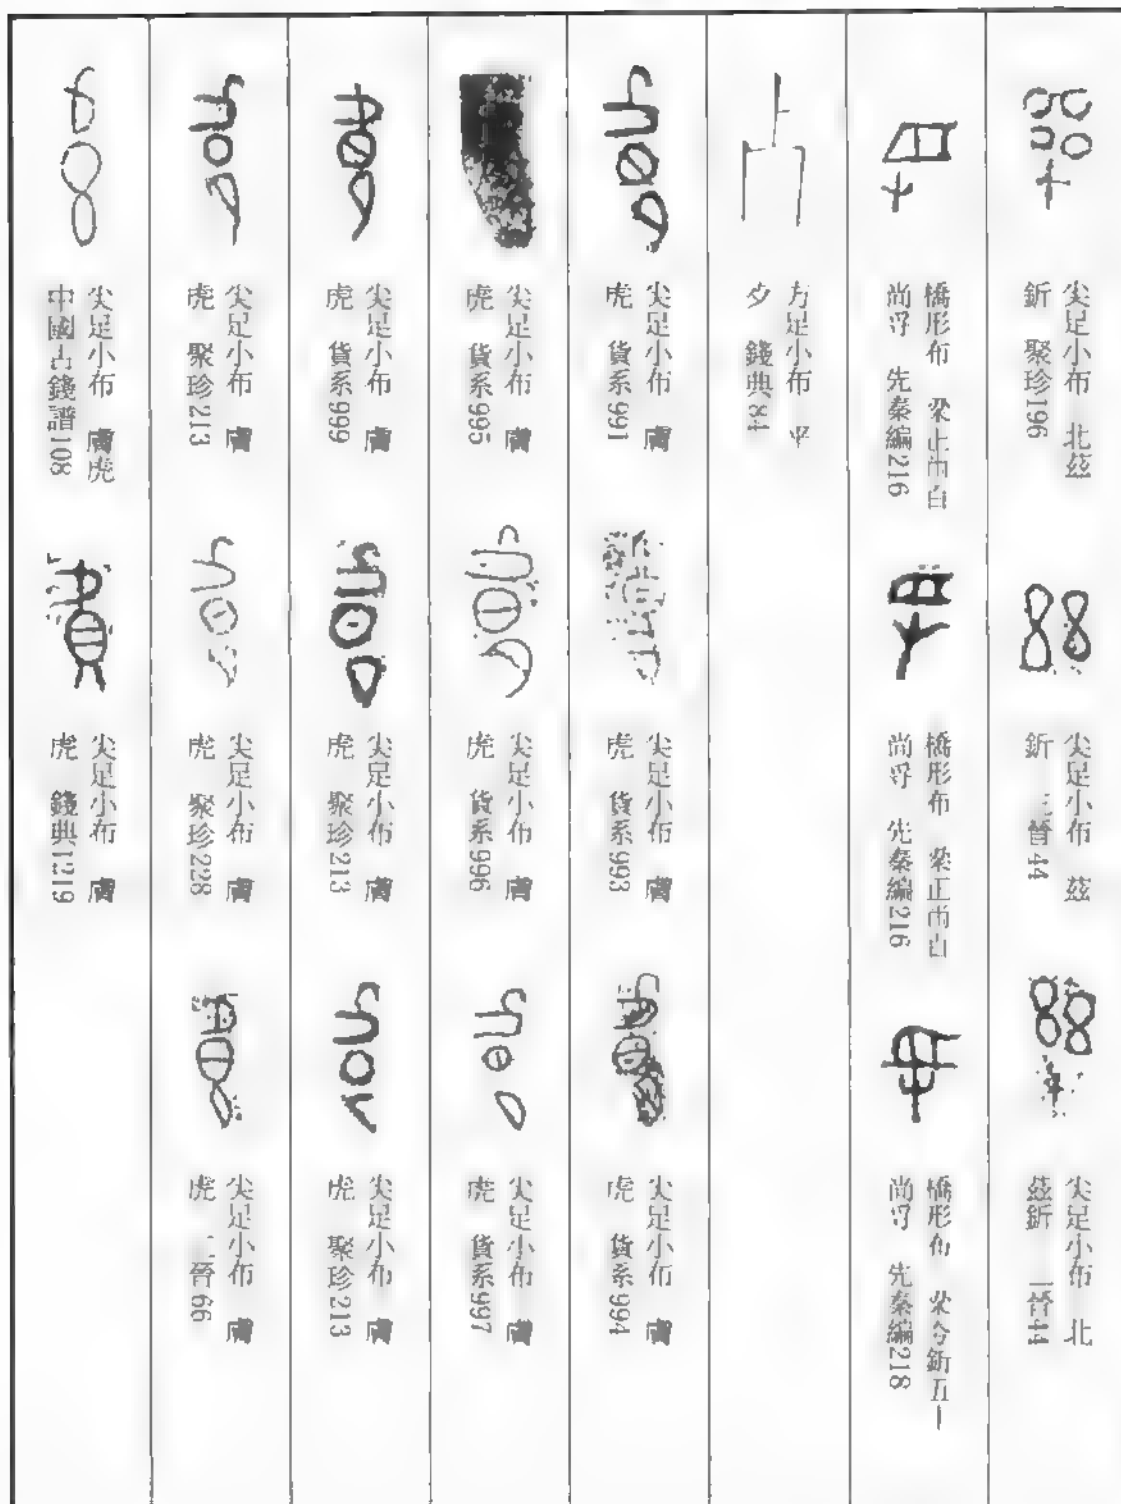 尖足小布 北茲
釿 聚珍196
尖足小布 茲
釿 三晉44
尖足小布 北
茲釿 三晉44
橋形布 梁正尚百
尚寽 先秦編216
橋形布 梁正尚百
尚寽 先秦編216
橋形布 梁夸釿五十
尚寽 先秦編218
方足小布 平
夕 錢典84
尖足小布 膚
虎 貨系991
尖足小布 膚
虎 貨系993
尖足小布 膚
虎 貨系994
尖足小布 膚
虎 貨系995
尖足小布 膚
虎 貨系996
尖足小布 膚
虎 貨系997
尖足小布 膚
虎 貨系999
尖足小布 膚
虎 聚珍213
尖足小布 膚
虎 聚珍213
尖足小布 膚
虎 聚珍213
尖足小布 膚
虎 聚珍228
尖足小布 膚
虎 三晉66
尖足小布 膚虎
中國古錢譜108
尖足小布 膚
虎 錢典1219